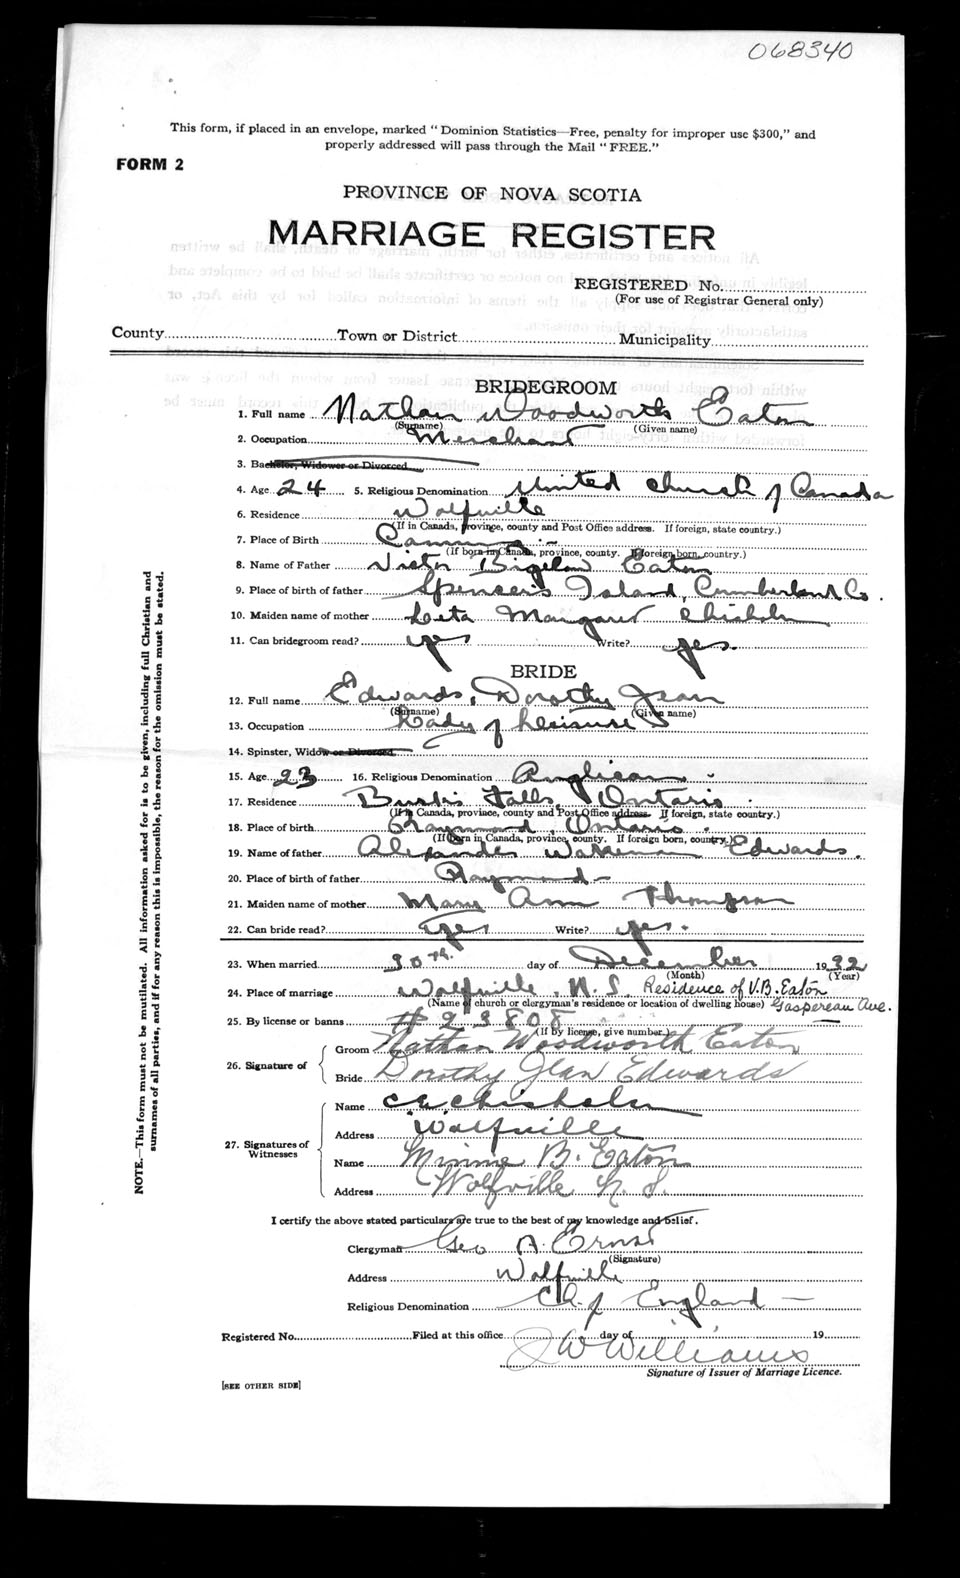 068340
This form, if placed in an envelope, marked "Dominion Statistics—Free, penalty for improper use $300," and
properly addressed will pass through the Mail "FREE."
FORM 2
PROVINCE OF NOVA SCOTIA
MARRIAGE REGISTER
REGISTERED No.
(For use of Registrar General only)
County Town or District Municipality
BRIDEGROOM
1. Full name Nathan Woodworth Eaton
(Surname) (Given name)
2. Occupation Merchant
3. Bachelor, Widower or Divorced
4. Age 24 5. Religious Denomination United Church of Canada
6. Residence Wolfville
(If in Canada, province, county and Post Office address. If foreign, state country.)
7. Place of Birth Canning
(If born in Canada, province, county. If foreign born, country.)
8. Name of Father Victor Bigelow Eaton
9. Place of birth of father Spencer's Island, Cumberland Co.
10. Maiden name of mother Leta Margaret Chisholm
11. Can bridegroom read? yes Write? yes.
BRIDE
12. Full name Edwards, Dorothy Jean
(Surname) (Given name)
13. Occupation Lady of Leisure
14. Spinster, Widow or Divorced
15. Age 23 16. Religious Denomination Anglican
17. Residence Burk's Falls, Ontario
(If in Canada, province, county and Post Office address. If foreign, state country.)
18. Place of birth Raymond, Ontario.
(If born in Canada, province, county. If foreign born, country.)
19. Name of father Alexander Wakeman Edwards.
20. Place of birth of father Raymond
21. Maiden name of mother Mary Ann Thompson
22. Can bride read? yes Write? yes.
23. When married 30th. day of December 1932
(Month) (Year)
24. Place of marriage Wolfville, N.S. Residence of V.B. Eaton
(Name of church or clergyman's residence or location of dwelling house) Gaspereau Ave.
25. By license or banns # 23808
(If by license, give number.)
26. Signature of
Groom Nathan Woodworth Eaton
Bride Dorothy Jean Edwards
27. Signatures of Witnesses
Name C.E. Chisholm
Address Wolfville
Name Minnie B. Eaton
Address Wolfville N.S.
I certify the above stated particulars are true to the best of my knowledge and belief.
Clergyman Geo A. Ernst
(Signature)
Address Wolfville
Religious Denomination Ch. of England
Registered No. Filed at this office day of 19
J W Williams
Signature of Issuer of Marriage Licence.
[SEE OTHER SIDE]
NOTE.—This form must not be mutilated. All information asked for is to be given, including full Christian and
surnames of all parties, and if for any reason this is impossible, the reason for the omission must be stated.